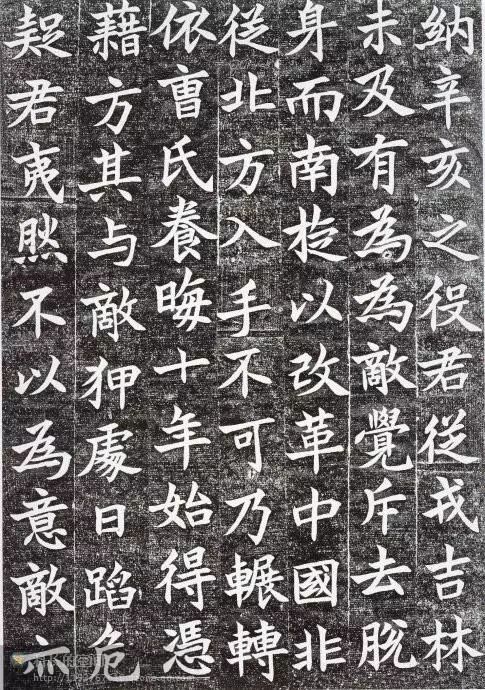 納辛亥之役君從戎吉林
未及有為為敵覺斥去脫
身而南旋以改革中國非
從北方入手不可乃輾轉
依曹氏養晦十年始得憑
藉方其与敵狎處日蹈危
疑君夷然不以為意敵